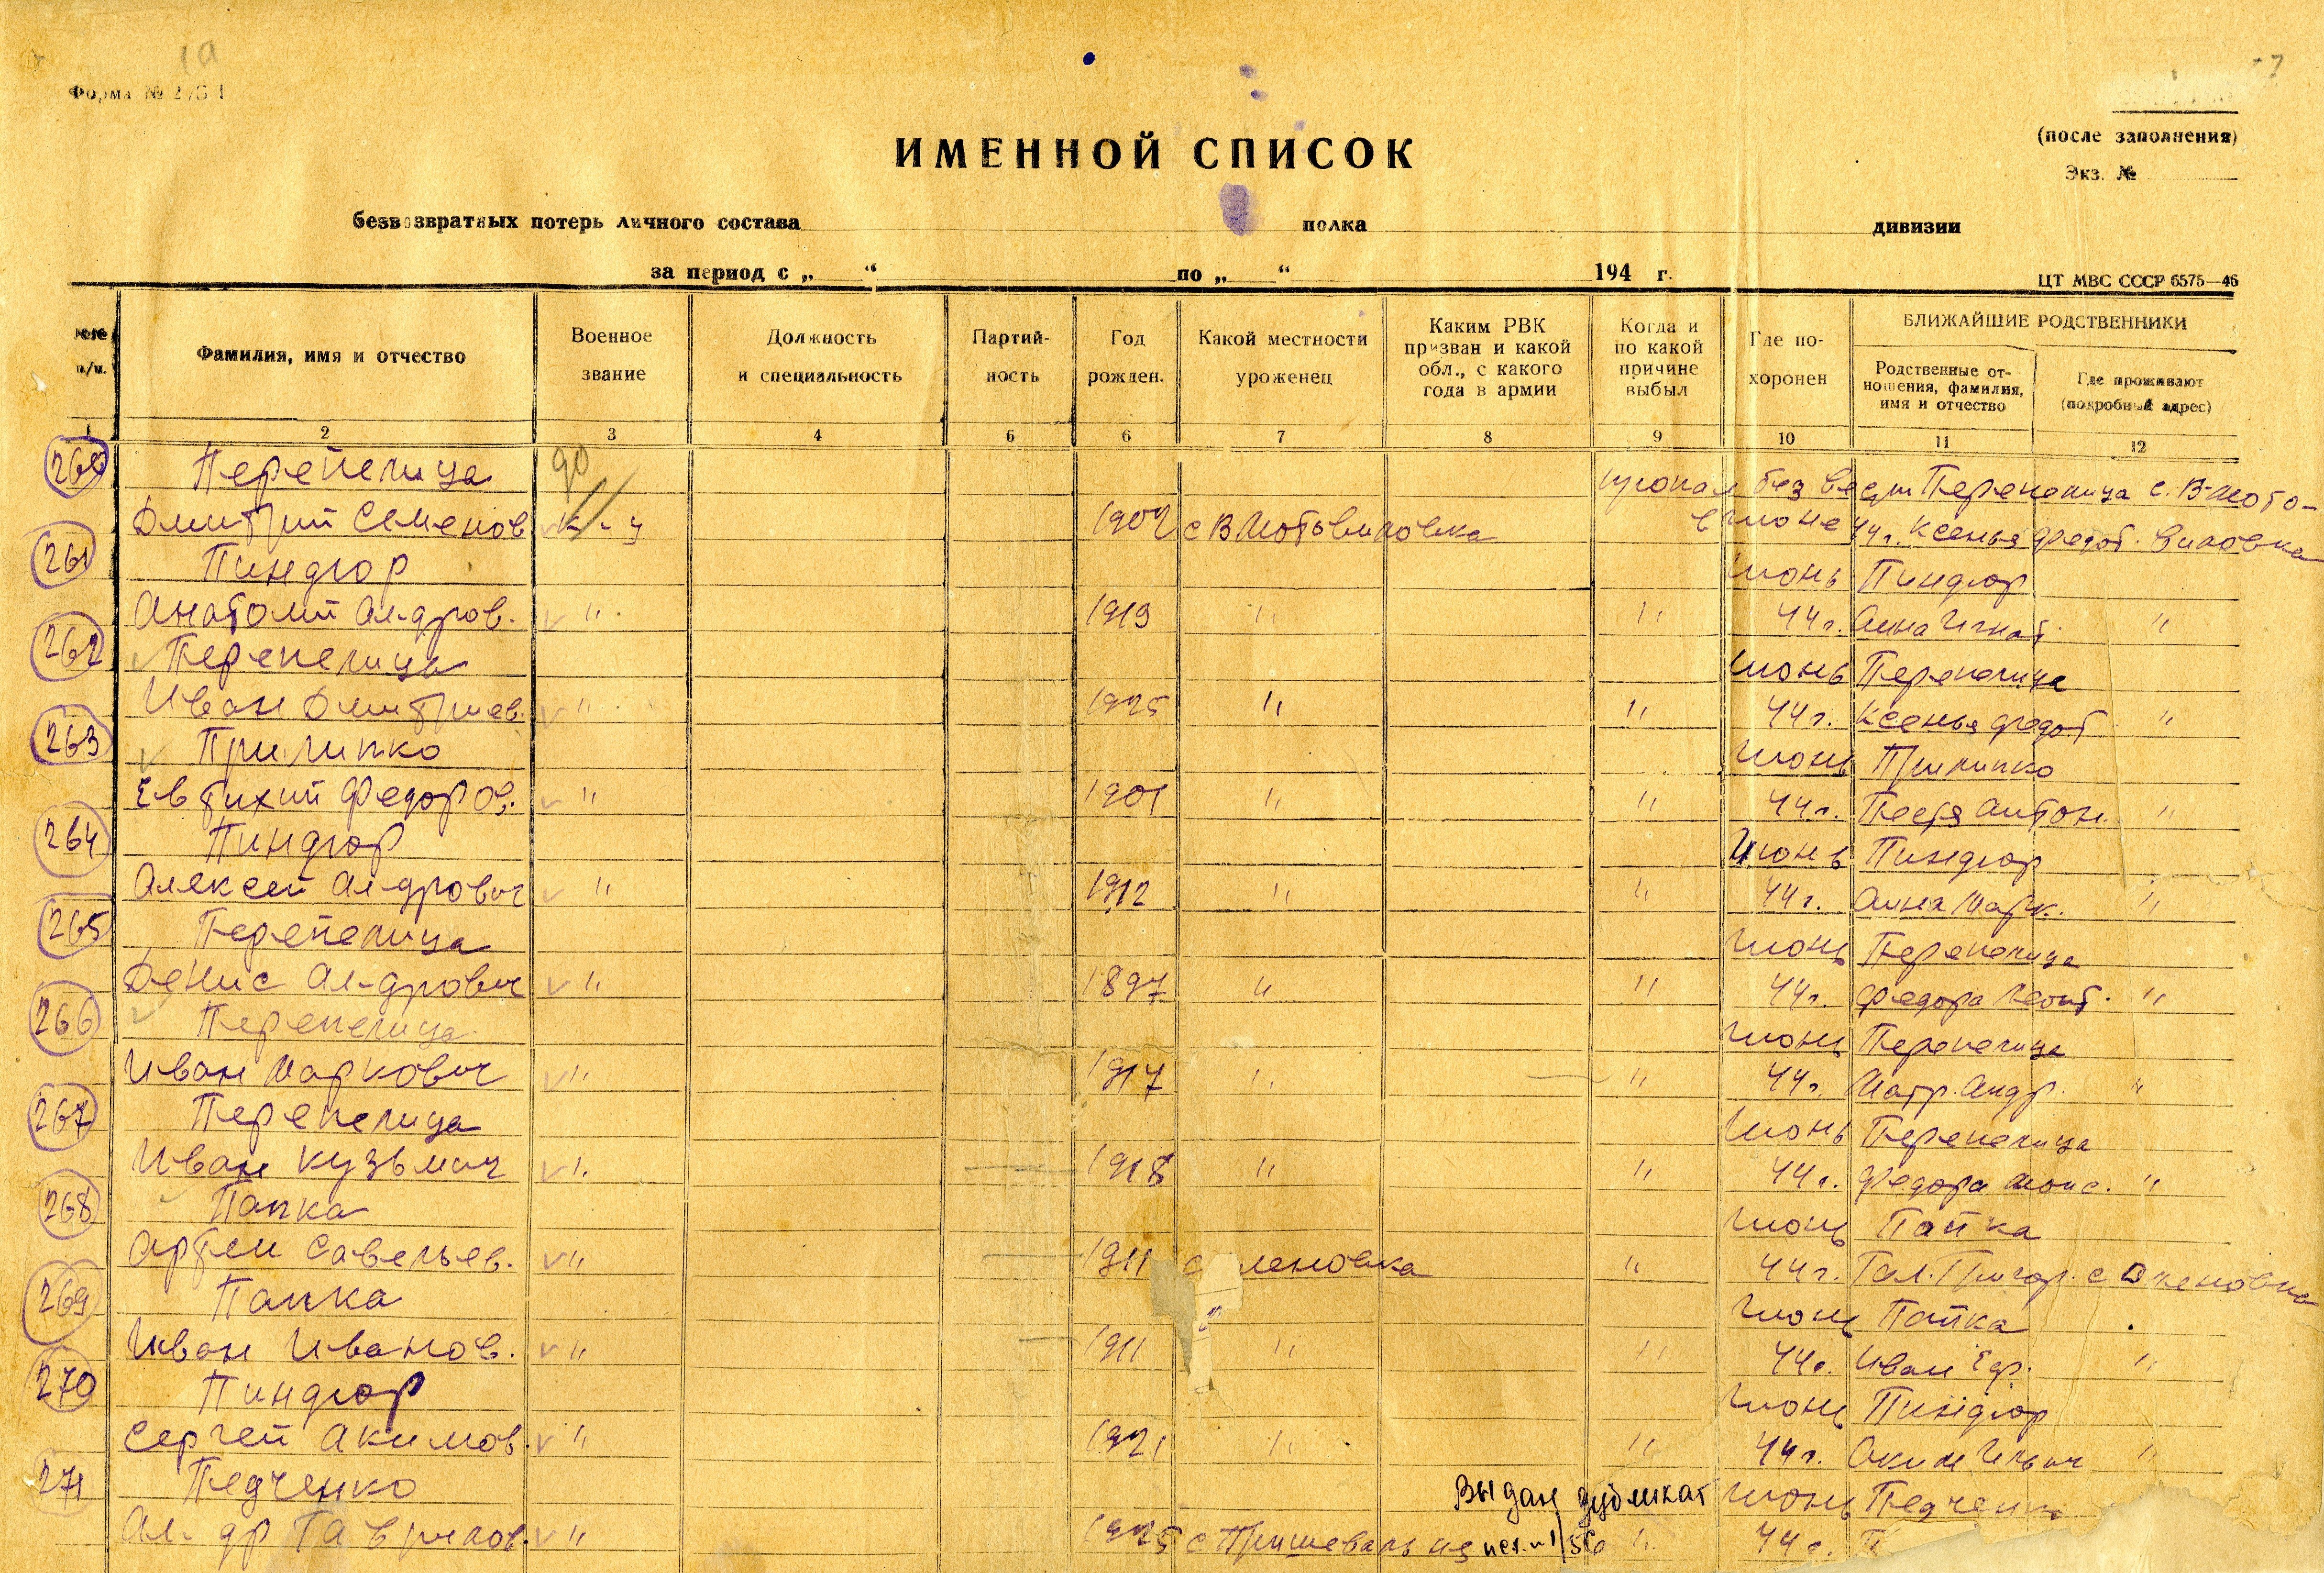 1а
7
Форма № 2/БП
(после заполнения)
Экз. №
ИМЕННОЙ СПИСОК
безвозвратных потерь личного состава полка дивизии
за период с „ “ по „ “ 194 г.
ЦТ МВС СССР 6575—46
№№ п/п.
Фамилия, имя и отчество
Военное звание
Должность и специальность
Партий-ность
Год рожден.
Какой местности уроженец
Каким РВК призван и какой обл., с какого года в армии
Когда и по какой причине выбыл
Где по-хоронен
БЛИЖАЙШИЕ РОДСТВЕННИКИ
Родственные от-ношения, фамилия, имя и отчество
Где проживают (подробный адрес)
1 2 3 4 6 6 7 8 9 10 11 12
260 Перепелица 90 пропал без вести Перепелица с. В-Мото-
Дмитрий Семенов к-ц 1902 с В Мотовиловка в июне 44 г. Ксенья Федот. виловка
261 Пиндюр Июнь Пиндюр
Анатолий Ал-дров. " 1919 " " 44 г. Анна Игнат. "
262 Перепелица Июнь Перепелица
Иван Дмитриев. " 1925 " " 44 г. Ксенья Федот "
263 Прилипко Июнь Прилипко
Евтихий Федоров. " 1901 " " 44 г. Антон. "
264 Пиндюр Июнь Пиндюр
Алексей Ал-дрович " 1912 " " 44 г. Анна Марк. "
265 Перепелица Июнь Перепелица
Денис Ал-дрович " 1897 " " 44 г. Федора Леонт. "
266 Перепелица Июнь Перепелица
Иван Маркович " 1917 " " 44 г. Матр. Андр. "
267 Перепелица Июнь Перепелица
Иван Кузьмич " 1918 " " 44 г. Федора Моис. "
268 Папка Июнь Папка
Артем Савельев. " 1911 с леновка " 44 г. Гал. Григор. с Оленовка
269 Папка Июнь Папка
Иван Иванов. " 1911 " " 44 г. Иван Ефр. "
270 Пиндюр Июнь Пиндюр
Сергей Акимов. " 1921 " " 44 г. Аким Ильич "
271 Педченко Выдан дубликат Июнь Педченко
Ал-др Гаврилов. " 1925 с исх. № 1/56 " 44 г. П